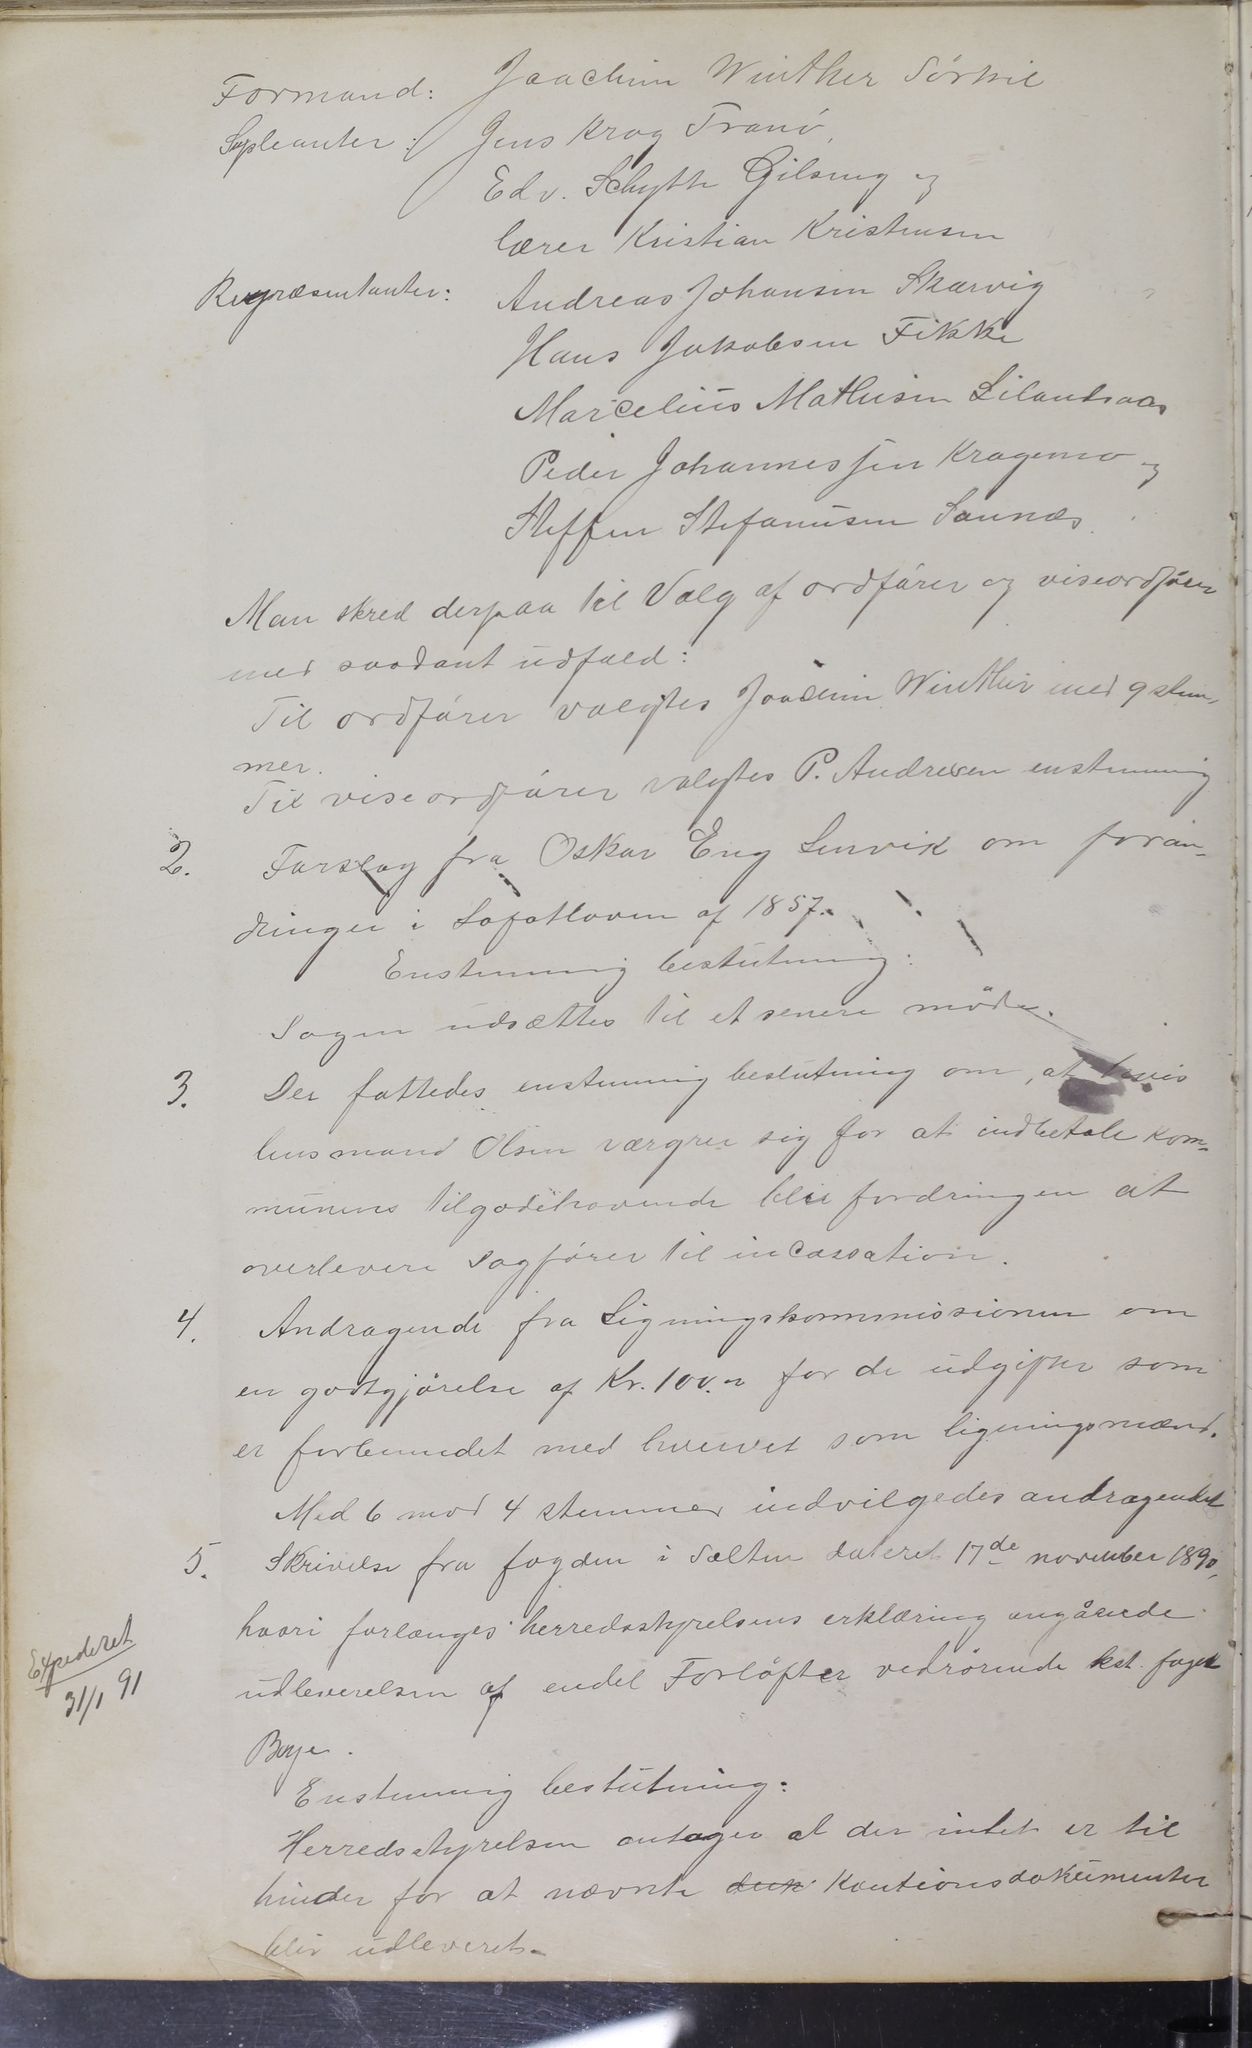 Formand: Joachim Winther Sörkil
Supleanter: Jens Krog Tranö,
Edv. Schytte Gilsmy og
lærer Kristian Kristensen
Repræsentanter: Andreas Johansen Skarvig
Hans Jakobsen Fikke
Marcelius Mathisen Lilandsaas
Peder Johannessen Kragemo og
Steffen Stefanusen Saunæs.
Man skred derpaa til Valg af ordförer og viseordförer
med saadant udfald:
Til ordförer valgtes Joachim Winther med 9 stem-
mer.
Til viseordförer valgtes P. Andresen enstemmig
2. Forslag fra Oskar Eng Lervik om foran-
dringer i Lofotloven af 1857.
Enstemmig beslutning:
Sagen udsættes til et senere möde.
3. Der fattedes enstemmig beslutning om, at hvis
lensmand Olsen værgrer sig for at indbetale kom-
munens tilgodehavende blir fordringen at
overlevere Sagförer til incassation.
4. Andragende fra Ligningskommmissionen om
en godtgjörelse af Kr. 100.- for de udgifter som
er forbundet med hvervet som ligningsmænd.
Med 6 mod 4 stemmer indvilgedes andragendet
5. Skrivelse fra fogden i Salten dateret 17de november 1890,
hvori forlanges herredsstyrelsens erklæring angående
udleverelsen af endel Forlöfter vedrörende kst. foged
Boye.
Expederet
31/1 91
Enstemmig beslutning:
Herredsstyrelsen antager at der intet er til
hinder for at nævnte Kautionsdokumenter
blir udleveret.